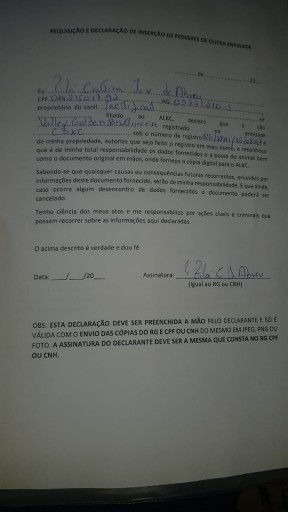 REQUISIÇÃO E DECLARAÇÃO DE INSERÇÃO DE PEDIGREE DE OUTRA ENTIDADE
de
20
Eu
de Abreu
CPF
RG
proprietário do canil
filiado ao ALKC, declaro que o cão
registrado na entidade
CBKC sob o número de registro
de minha propriedade, autorizo que seja feito o registro em meu nome, e reconheço
que é de minha total responsabilidade os dados fornecidos e a posse do animal bem
como o documento original em mãos, onde forneço a cópia digital para o ALKC.
Sabendo-se que quaisquer causas ou consequências futuras recorrentes, oriundas por
informações deste documento fornecido, serão de minha responsabilidade. E que ainda,
caso ocorra algum desencontro de dados fornecidos, o documento poderá ser
cancelado.
Tenho ciência dos meus atos e me responsabilizo por ações cíveis e criminais que
possam recorrer sobre as informações aqui declaradas.
O acima descrito é verdade e dou fé
Data: ___/___/20___ Assinatura:
(Igual ao RG ou CNH)
OBS: ESTA DECLARAÇÃO DEVE SER PREENCHIDA A MÃO PELO DECLARANTE E SÓ É
VÁLIDA COM O ENVIO DAS CÓPIAS DO RG E CPF OU CNH DO MESMO EM JPEG, PNG OU
FOTO. A ASSINATURA DO DECLARANTE DEVE SER A MESMA QUE CONSTA NO RG CPF
OU CNH.